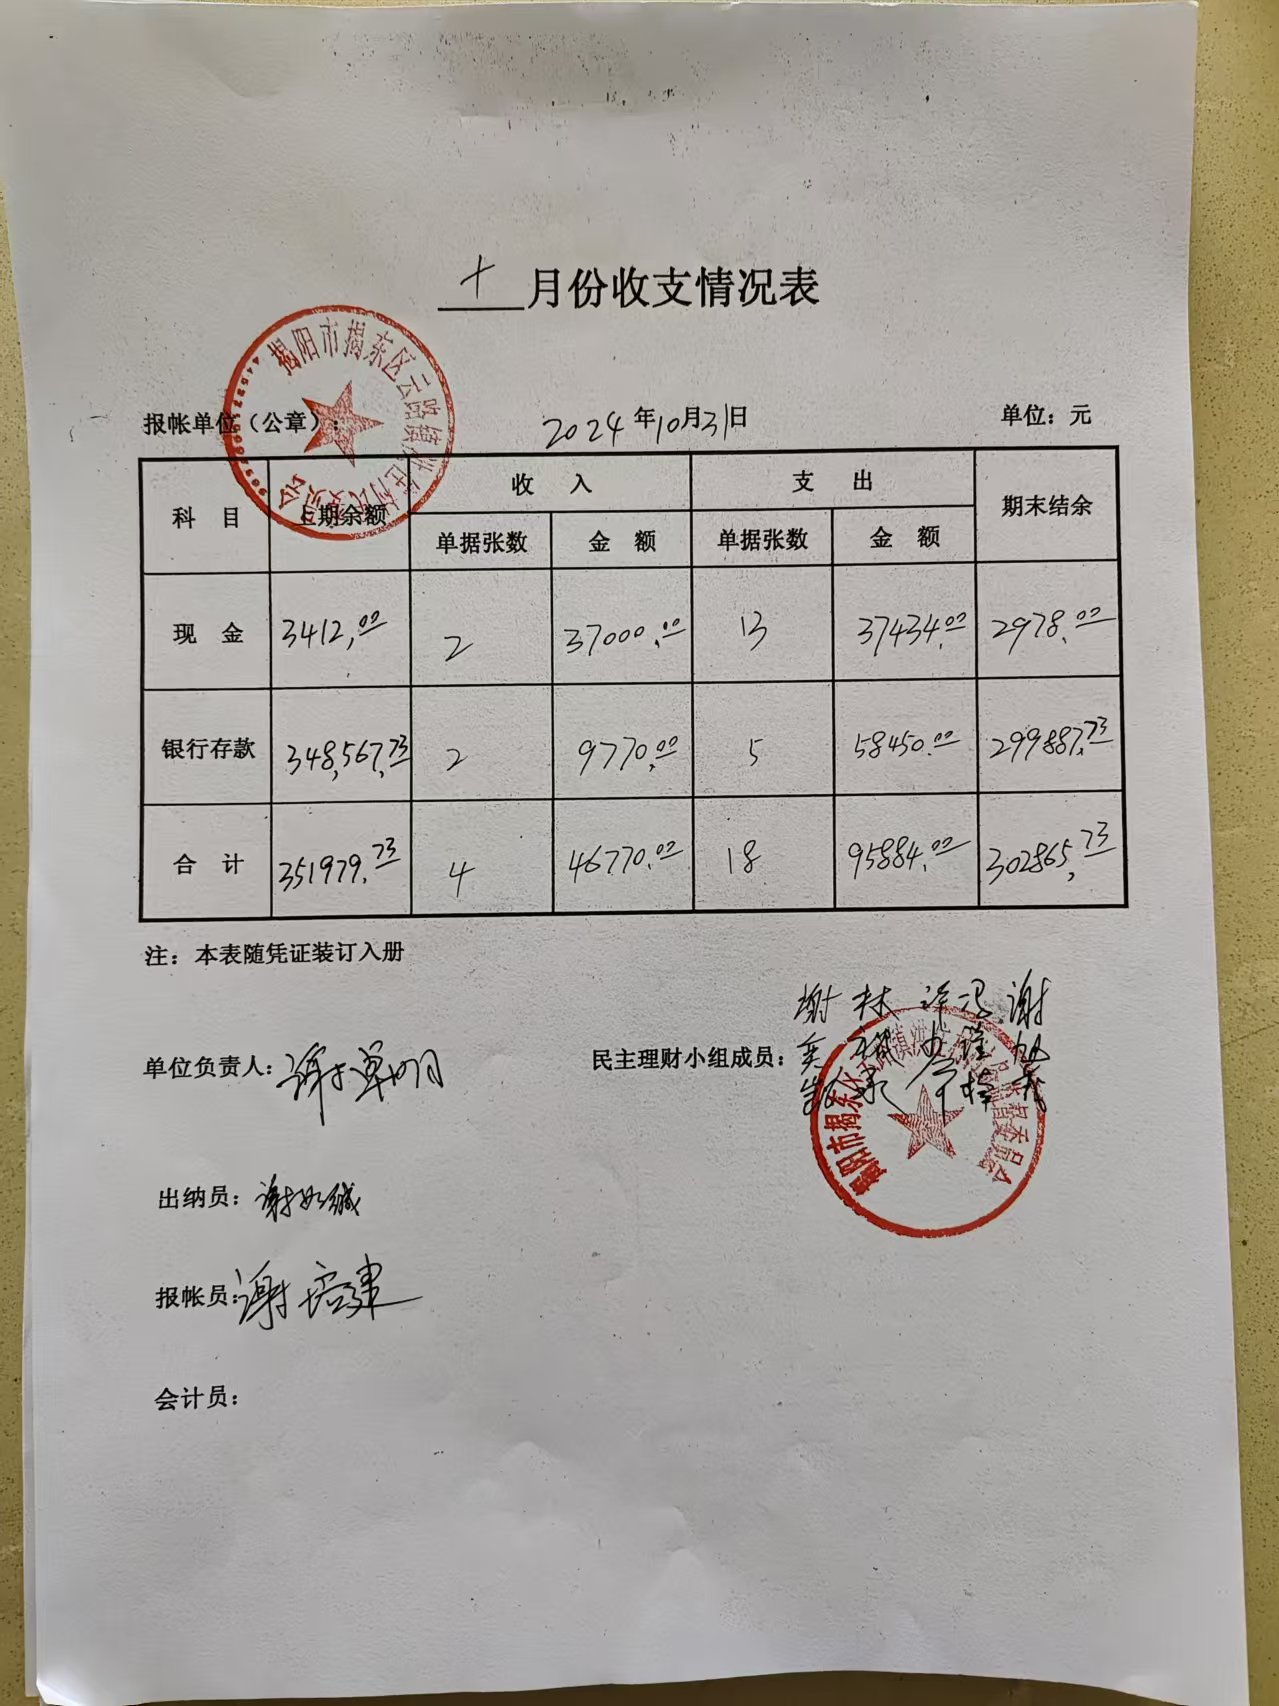 十月份收支情况表
揭阳市揭东区云路镇
报帐单位（公章）：
2024年10月31日
单位：元
科目 上期余额 收入 支出 期末结余
单据张数 金额 单据张数 金额
现金 3412.00 2 37000.00 13 37434.00 2978.00
银行存款 348,567.73 2 9770.00 5 58450.00 299887.73
合计 351979.73 4 46770.00 18 95884.00 302865.73
注：本表随凭证装订入册
单位负责人：
民主理财小组成员：
揭阳市揭东区 监督委员会
出纳员：
报帐员：谢培建
会计员：